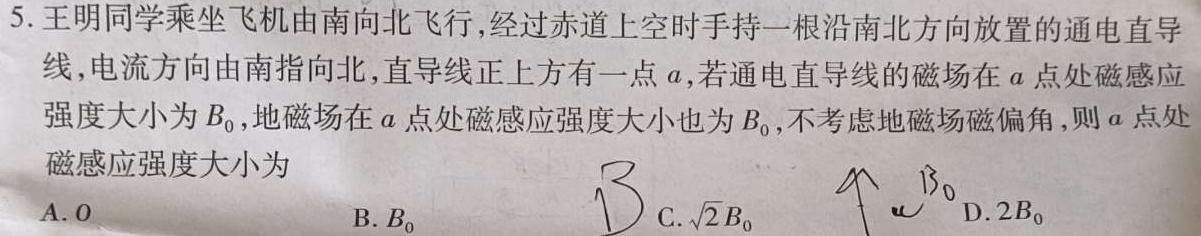 5. 王明同学乘坐飞机由南向北飞行,经过赤道上空时手持一根沿南北方向放置的通电直导
线,电流方向由南指向北,直导线正上方有一点 a,若通电直导线的磁场在 a 点处磁感应
强度大小为 B₀,地磁场在 a 点处磁感应强度大小也为 B₀,不考虑地磁场磁偏角,则 a 点处
磁感应强度大小为
A. 0 B. B₀ B C. √2B₀ B₀ D. 2B₀